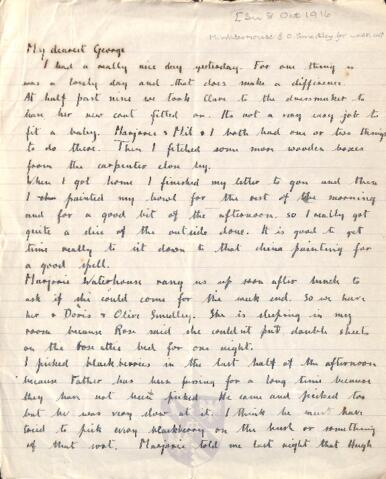 [Su 8 Oct 1916
M. Waterhouse & O. Smedley for week end
My dearest George
I had a really nice day yesterday. For one thing it
was a lovely day and that does make a difference.
At half past nine we took Clare to the dressmaker to
have her new coat fitted on. Its not a very easy job to
fit a baby. Marjorie & Mil & I both had one or two things
to do there. Then I fetched some more wooden boxes
from the carpenter close by.
When I got home I finished my letter to you and then
I painted my bowl for the rest of the morning
and for a good bit of the afternoon. so I really got
quite a slice of the outside done. It is good to get
time really to sit down to that china painting for
a good spell.
Marjorie Waterhouse rang us up soon after lunch to
ask if she could come for the week end. So we have
her & Doris & Olive Smedley. She is sleeping in my
room because Rose said she couldn't put double sheets
on the attic bed for one night.
I picked blackberries in the last half of the afternoon
because Father has been fussing for a long time because
they have not been picked. He came and picked too
but he was very slow at it. I think he must have
tried to pick every blackberry on the bush or something
of that sort. Marjorie told me last night that Hugh